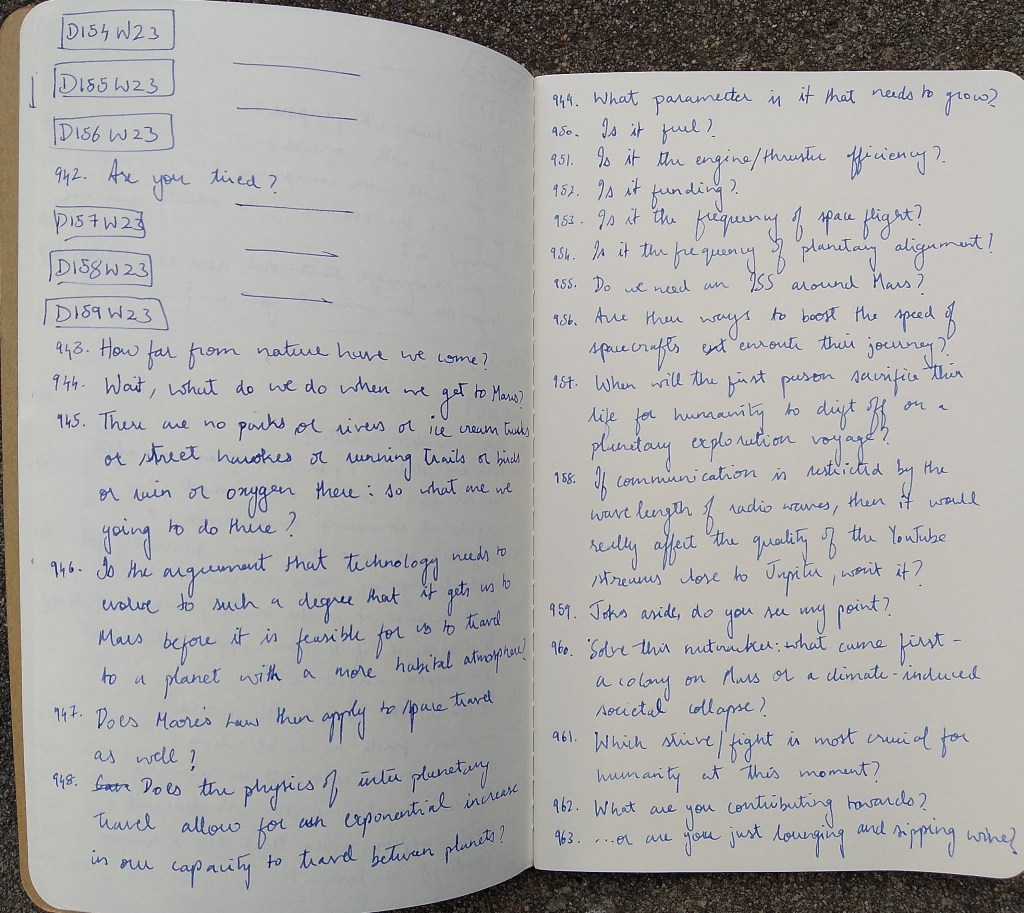 D154W23
D155W23
D156W23
942. Are you tired?
D157W23
D158W23
D159W23
943. How far from nature have we come?
944. Wait, what do we do when we get to Mars?
945. There are no parks or rivers or ice cream trucks
or street hawkes or running trails or birds
or rain or oxygen there: so what are we
going to do there?
946. Is the argument that technology needs to
evolve to such a degree that it gets us to
Mars before it is feasible for us to travel
to a planet with a more habital atmosphere?
947. Does Moore's Law then apply to space travel
as well?
948. Does the physics of inter planetary
travel allow for an exponential increase
in our capacity to travel between planets?
949. What parameter is it that needs to grow?
950. Is it fuel?
951. Is it the engine/thruster efficiency?
952. Is it funding?
953. Is it the frequency of space flight?
954. Is it the frequency of planetary alignment?
955. Do we need an ISS around Mars?
956. Are there ways to boost the speed of
spacecrafts enroute their journey?
957. When will the first person sacrifice their
life for humanity to drift off on a
planetary exploration voyage?
958. If communication is restricted by the
wavelength of radio waves, then it would
really affect the quality of the YouTube
streams close to Jupiter, won't it?
959. Jokes aside, do you see my point?
960. Solve this nutcracker: what came first -
a colony on Mars or a climate-induced
societal collapse?
961. Which strive/fight is most crucial for
humanity at this moment?
962. What are you contributing towards?
963. ...or are you just lounging and sipping wine?